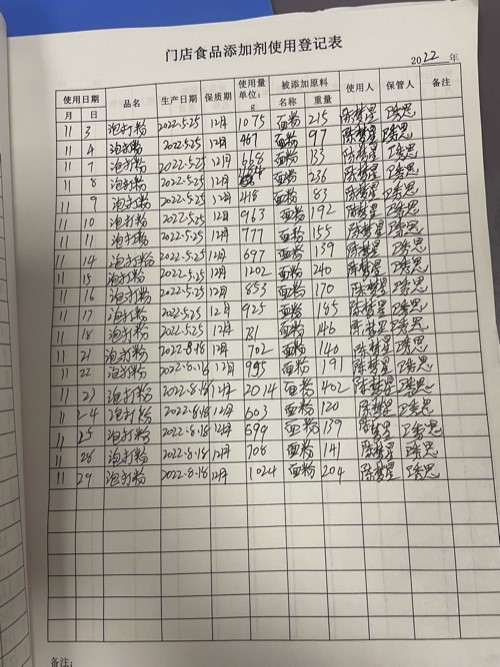 门店食品添加剂使用登记表
2022年
使用日期 品名 生产日期 保质期 使用量单位:g 被添加原料 使用人 保管人 备注
月 日 名称 重量
11 3 泡打粉 2022.5.25 12月 1075 面粉 215 陈梦星
11 4 泡打粉 2022.5.25 12月 487 面粉 97 陈梦星
11 7 泡打粉 2022.5.25 12月 668 面粉 133 陈梦星
11 8 泡打粉 2022.5.25 12月 面粉 236 陈梦星
11 9 泡打粉 2022.5.25 12月 418 面粉 83 陈梦星
11 10 泡打粉 2022.5.25 12月 963 面粉 192 陈梦星
11 11 泡打粉 2022.5.25 12月 777 面粉 155 陈梦星
11 14 泡打粉 2022.5.25 12月 697 面粉 139 陈梦星
11 15 泡打粉 2022.5.25 12月 1202 面粉 240 陈梦星
11 16 泡打粉 2022.5.25 12月 853 面粉 170 陈梦星
11 17 泡打粉 2022.5.25 12月 925 面粉 185 陈梦星
11 18 泡打粉 2022.5.25 12月 731 面粉 146 陈梦星
11 21 泡打粉 2022.8.18 12月 702 面粉 140 陈梦星
11 22 泡打粉 2022.8.18 12月 955 面粉 191 陈梦星
11 23 泡打粉 2022.8.18 12月 2014 面粉 402 陈梦星
11 24 泡打粉 2022.8.18 12月 603 面粉 120 陈梦星
11 25 泡打粉 2022.8.18 12月 699 面粉 139 陈梦星
11 28 泡打粉 2022.8.18 12月 708 面粉 141 陈梦星
11 29 泡打粉 2022.8.18 12月 1024 面粉 204 陈梦星
备注: